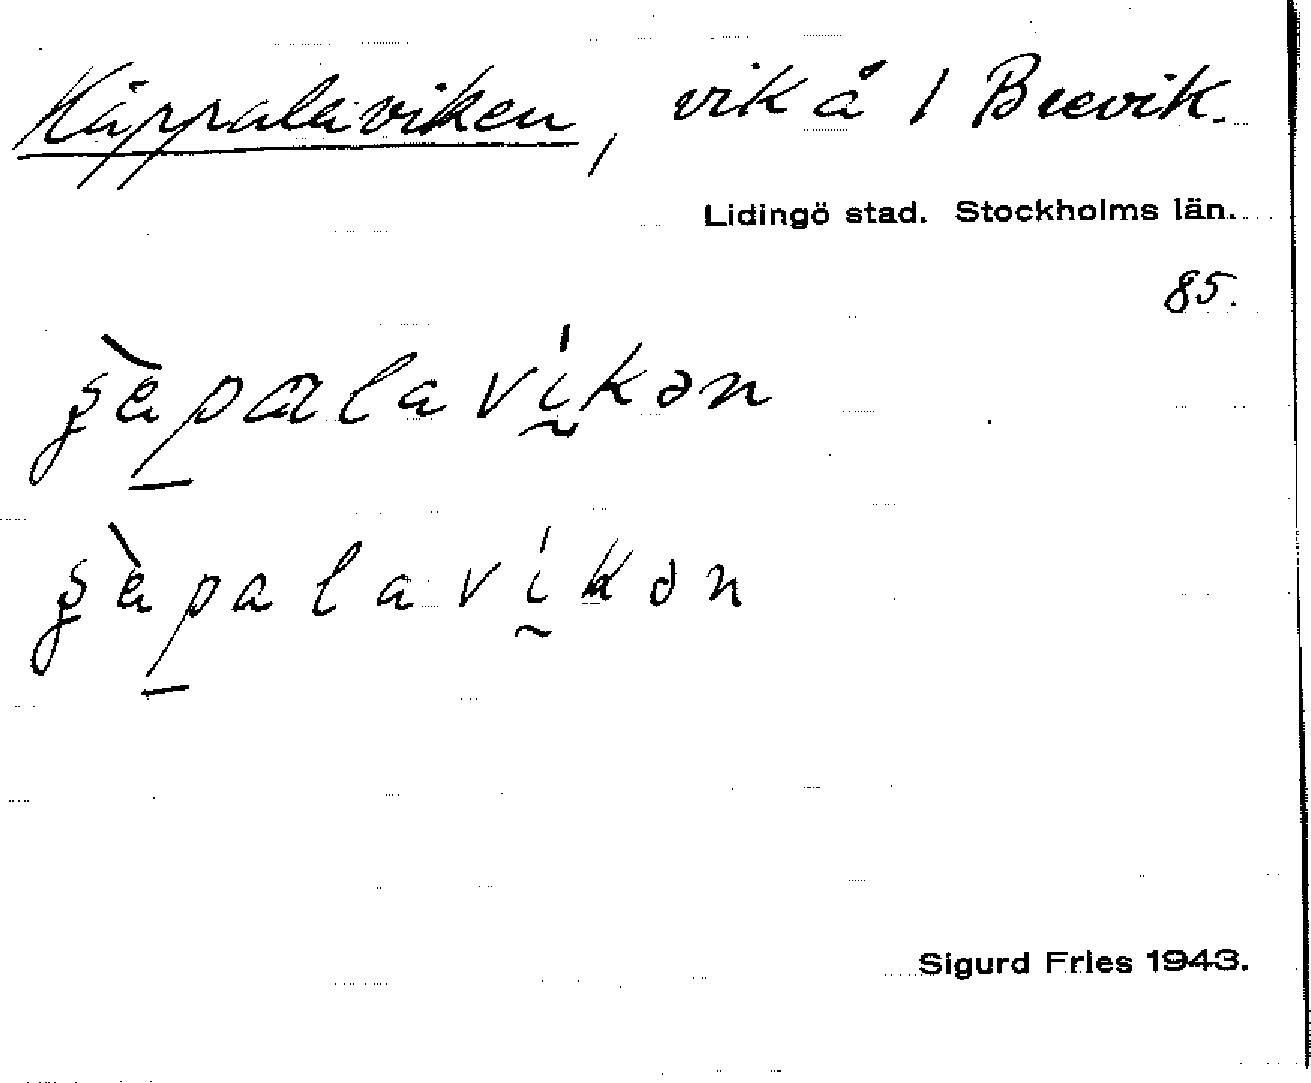 Käppalaviken, vik å 1 Brevik.
Lidingö stad. Stockholms län.
85.
ʂὲpalavíkən
ʂὲpalavíkən
Sigurd Fries 1943.